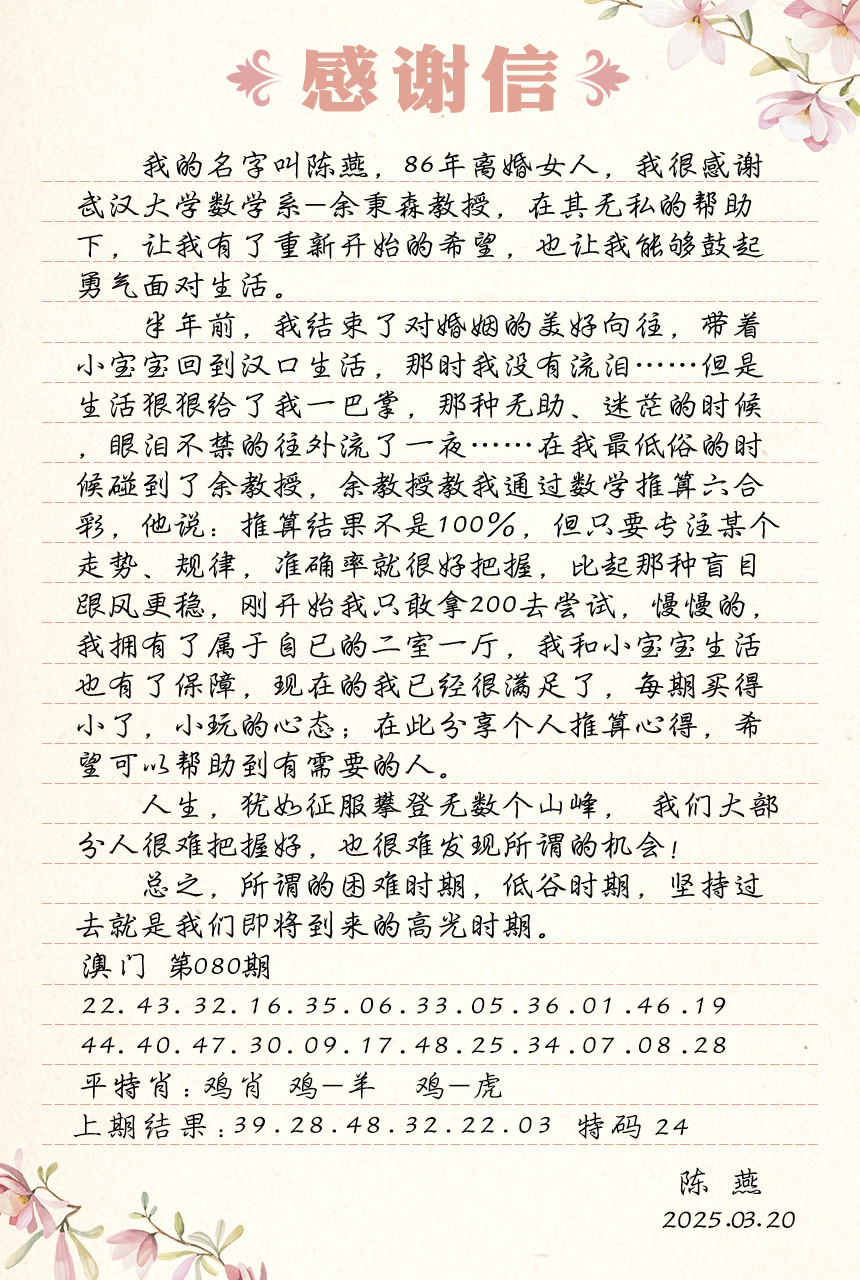 感谢信
我的名字叫陈燕，86年离婚女人，我很感谢
武汉大学数学系—余秉森教授，在其无私的帮助
下，让我有了重新开始的希望，也让我能够鼓起
勇气面对生活。
半年前，我结束了对婚姻的美好向往，带着
小宝宝回到汉口生活，那时我没有流泪……但是
生活狠狠给了我一巴掌，那种无助、迷茫的时候
，眼泪不禁的往外流了一夜……在我最低俗的时
候碰到了余教授，余教授教我通过数学推算六合
彩，他说：推算结果不是100%，但只要专注某个
走势、规律，准确率就很好把握，比起那种盲目
跟风更稳，刚开始我只敢拿200去尝试，慢慢的，
我拥有了属于自已的二室一厅，我和小宝宝生活
也有了保障，现在的我已经很满足了，每期买得
小了，小玩的心态；在此分享个人推算心得，希
望可以帮助到有需要的人。
人生，犹如征服攀登无数个山峰， 我们大部
分人很难把握好，也很难发现所谓的机会！
总之，所谓的困难时期，低谷时期，坚持过
去就是我们即将到来的高光时期。
澳门 第080期
22.43.32.16.35.06.33.05.36.01.46.19
44.40.47.30.09.17.48.25.34.07.08.28
平特肖：鸡肖 鸡—羊 鸡—虎
上期结果：39.28.48.32.22.03 特码 24
陈 燕
2025.03.20